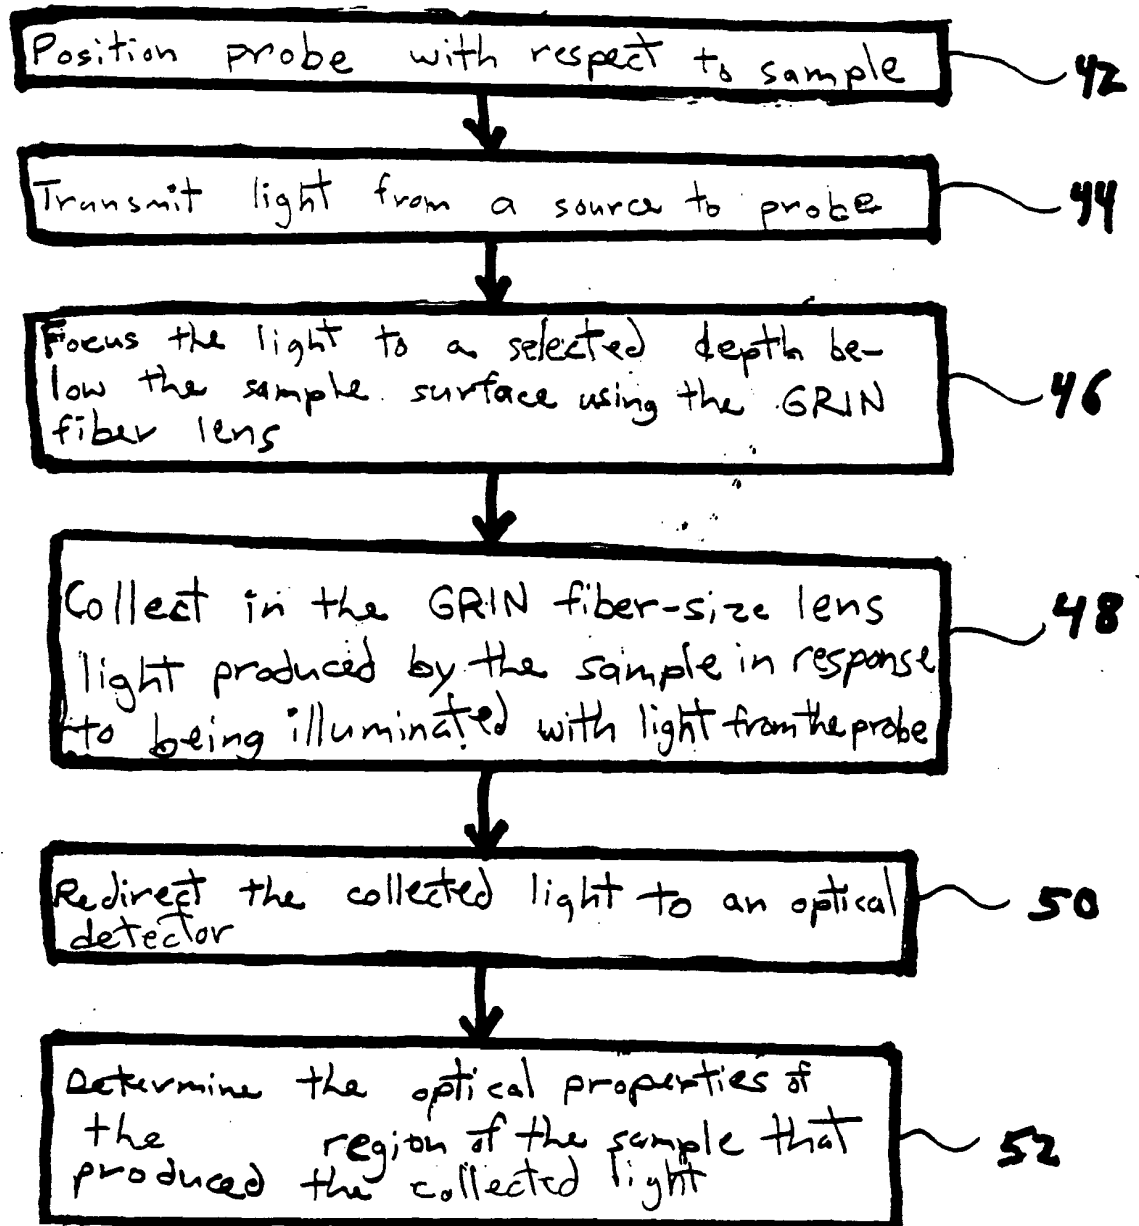 Position probe with respect to sample
42
Transmit light from a source to probe
44
Focus the light to a selected depth be-
low the sample surface using the GRIN
fiber lens
46
Collect in the GRIN fiber-size lens
light produced by the sample in response
to being illuminated with light from the probe
48
Redirect the collected light to an optical
detector
50
Determine the optical properties of
the region of the sample that
produced the collected light
52